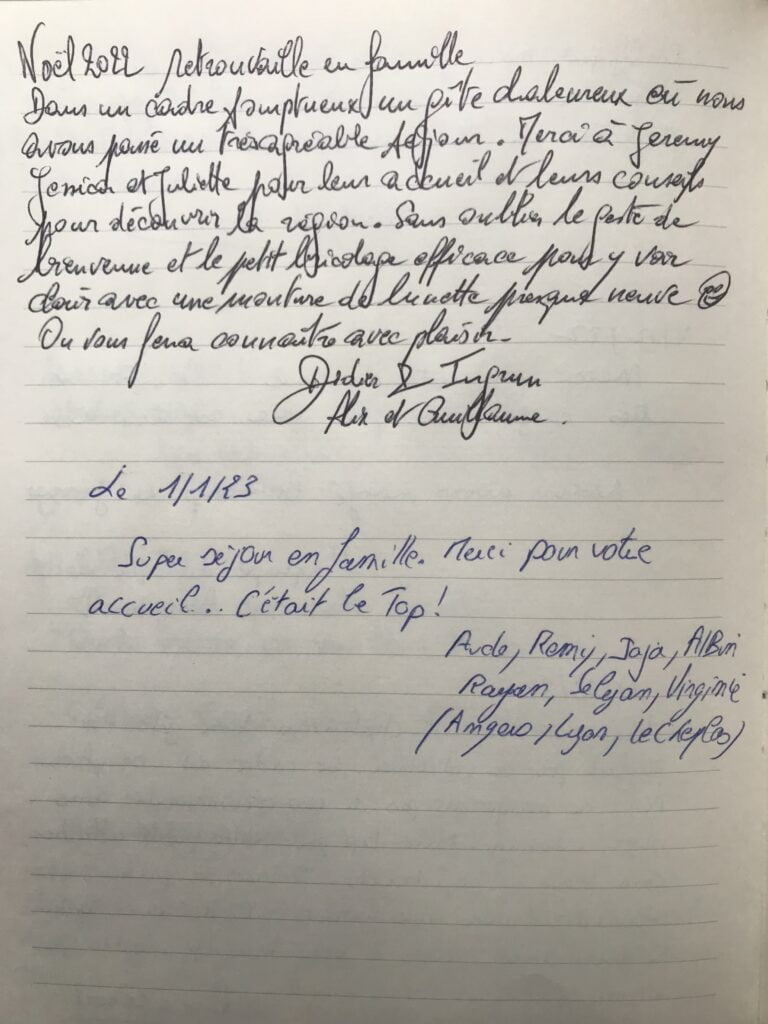 Noël 2022 retrouvaille en famille
Dans un cadre somptueux un gîte chaleureux où nous
avons passé un très agréable séjour. Merci à Jeremy
Jessica et Juliette pour leur accueil et leurs conseils
pour découvrir la région. Sans oublier le geste de
bienvenue et le petit bricolage efficace pour y voir
clair avec une monture de lunette presque neuve
On vous fera connaître avec plaisir.
Didier & Ingrun
Alix et Guillaume.
Le 1/1/23
Super séjour en famille. Merci pour votre
accueil... C'était le Top!
Aude, Remy, Jaja, Albin
Rayan, Selyan, Virginie
(Angers, Lyon,